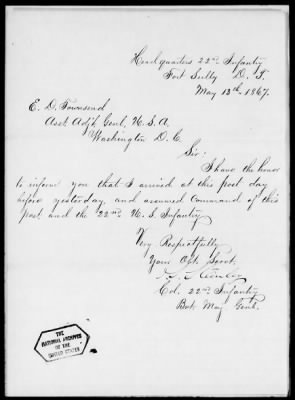 Headquarters 22nd Infantry
Fort Sully D. T.
May 13th 1867.
E. D. Townsend
Asst Adjt. Genl. U. S. A
Washington D. C.
Sir:
I have the honor
to inform you that I arrived at this post day
before yesterday, and assumed command of this
post and the 22nd U. S. Infantry
Very Respectfully
Your Obt. Servt.
Col. 22nd Infantry
Bvt. Maj Genl.
THE
NATIONAL ARCHIVES
OF THE
UNITED STATES